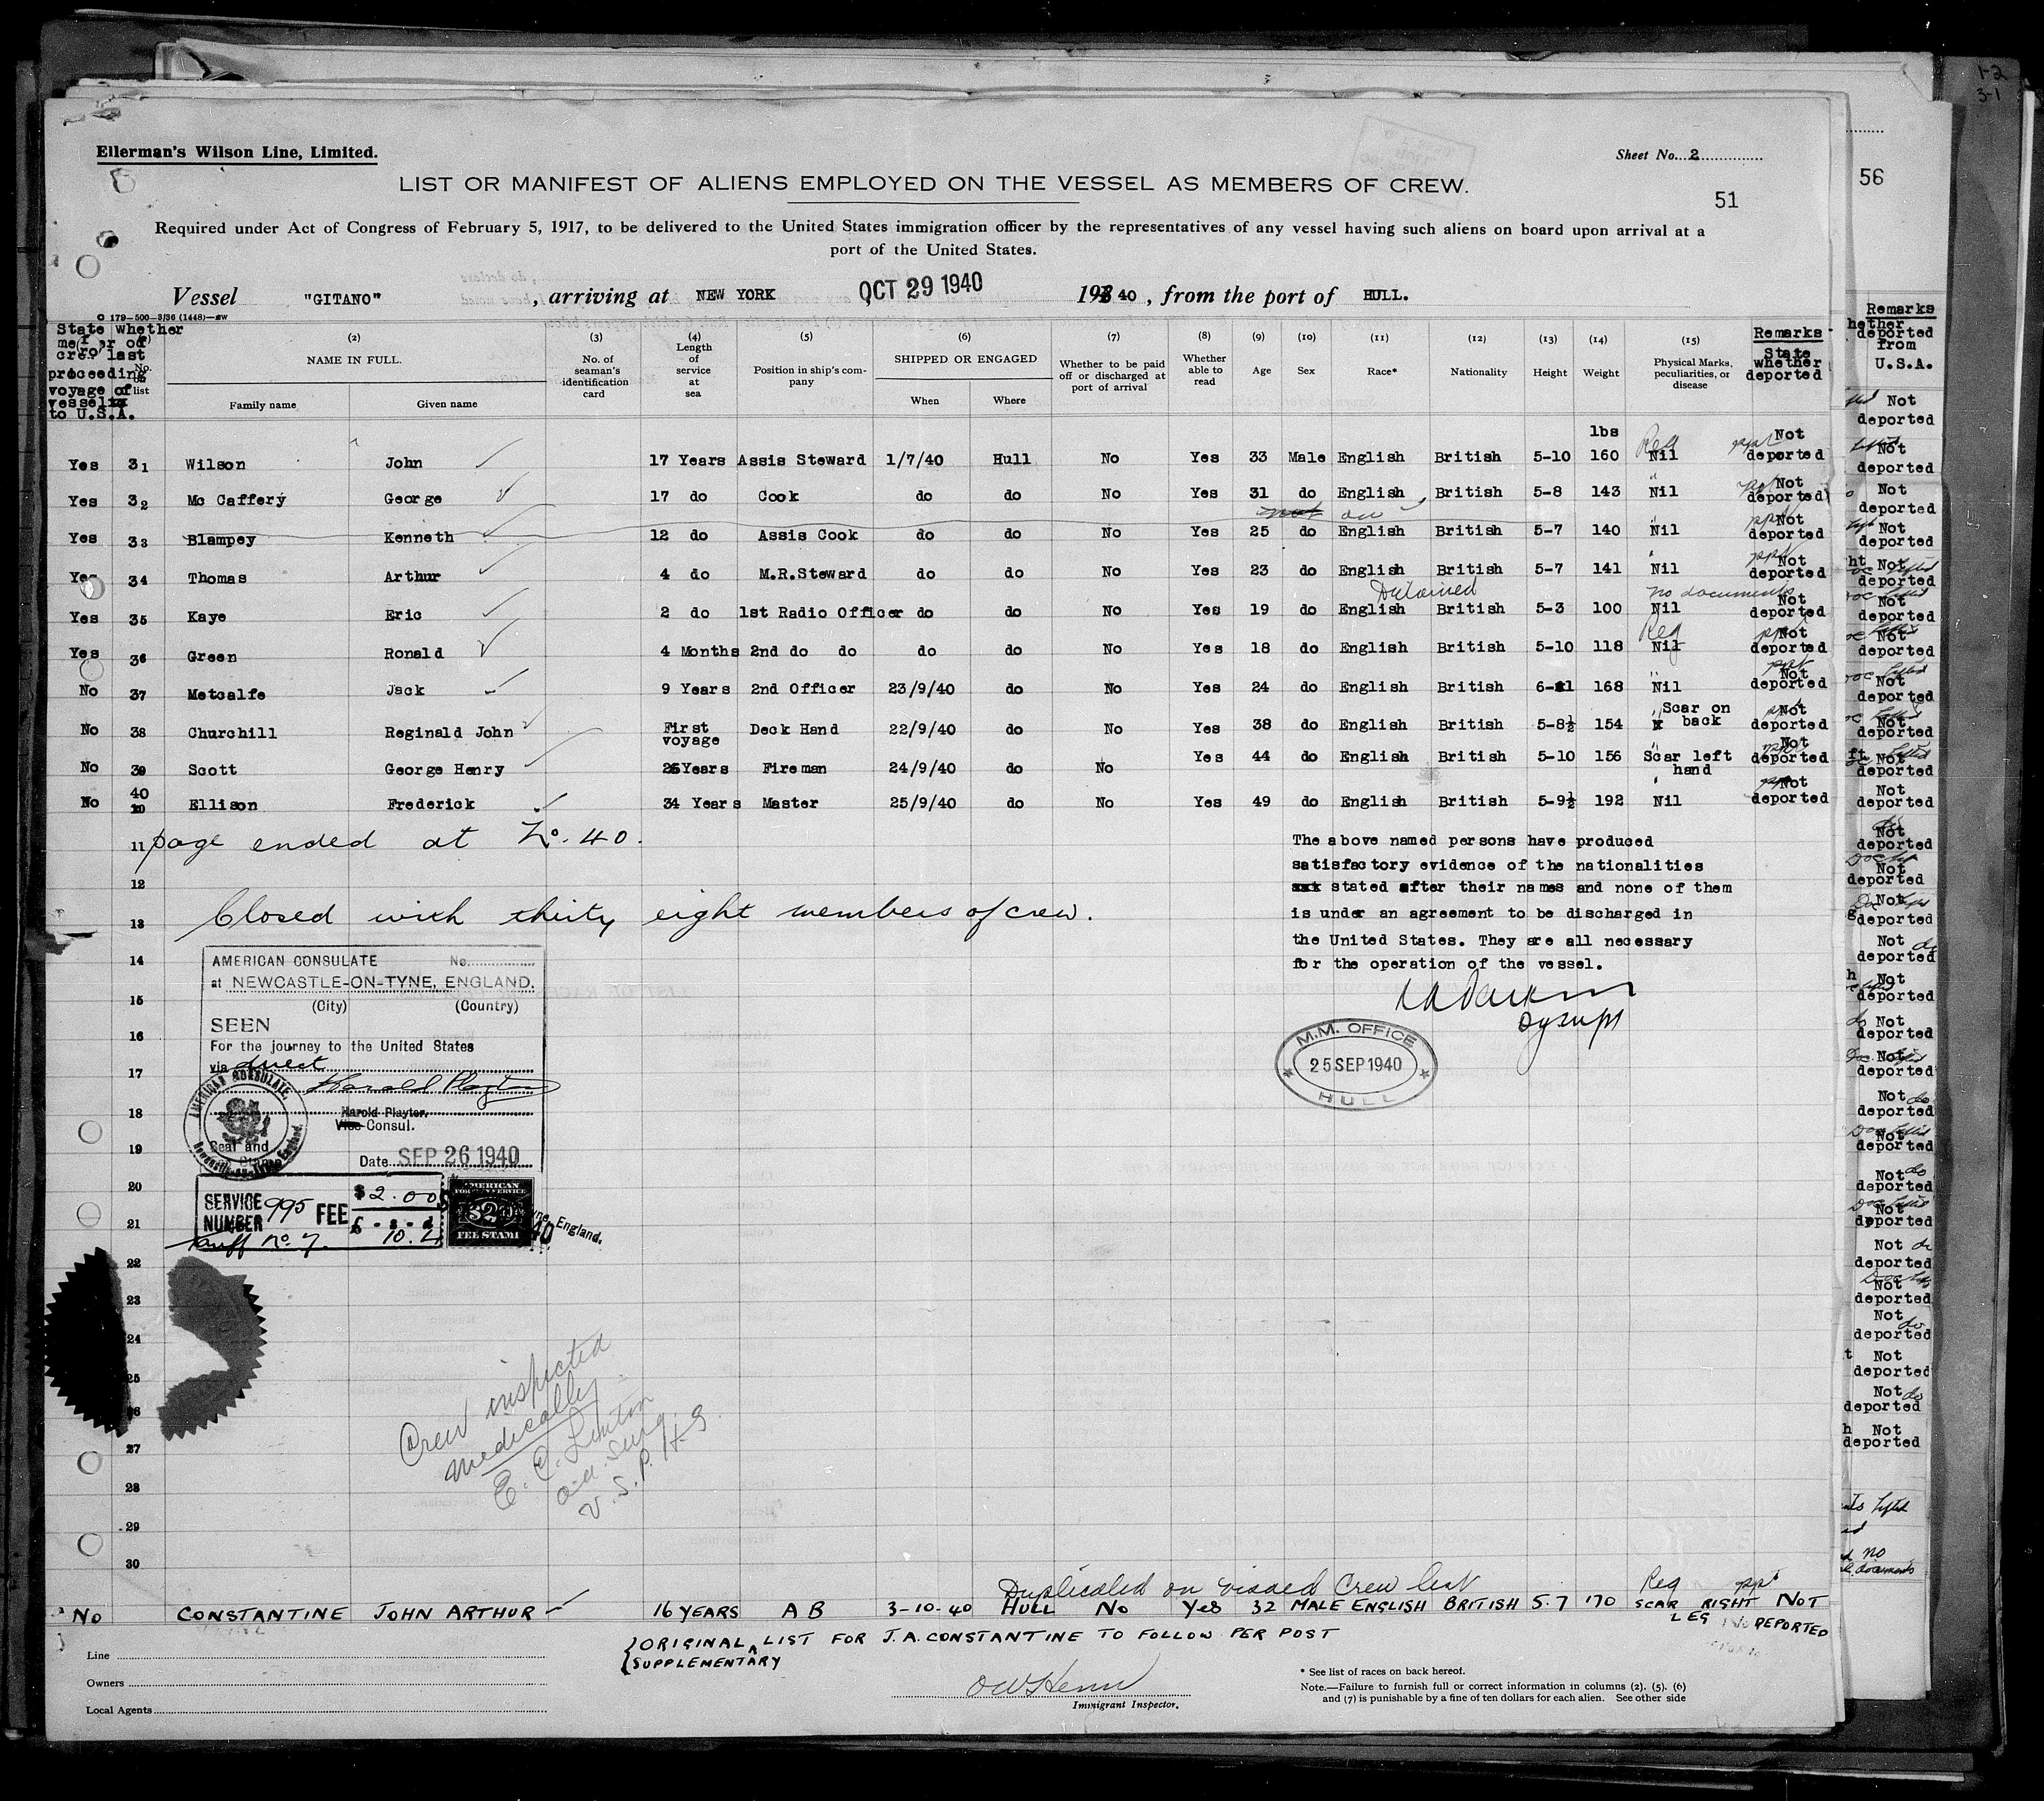 1-2
3-1
Ellerman's Wilson Line, Limited.
Sheet No. 2
LIST OR MANIFEST OF ALIENS EMPLOYED ON THE VESSEL AS MEMBERS OF CREW.
51
56
Required under Act of Congress of February 5, 1917, to be delivered to the United States immigration officer by the representatives of any vessel having such aliens on board upon arrival at a
port of the United States.
Vessel "GITANO" , arriving at NEW YORK OCT 29 1940 193 40 , from the port of HULL.
C 179-500-3/36 (1448)
State whether member of crew last proceeding voyage of vessel to U.S.A. No. on list (2) NAME IN FULL. Family name Given name (3) No. of seaman's identification card (4) Length of service at sea (5) Position in ship's company (6) SHIPPED OR ENGAGED When Where (7) Whether to be paid off or discharged at port of arrival (8) Whether able to read (9) Age (10) Sex (11) Race* (12) Nationality (13) Height (14) Weight (15) Physical Marks, peculiarities, or disease Remarks State whether deported
lbs
Yes 31 Wilson John 17 Years Assis Steward 1/7/40 Hull No Yes 33 Male English British 5-10 160 Reg Nil ppt Not deported
Yes 32 Mc Caffery George 17 do Cook do do No Yes 31 do English British 5-8 143 " Nil ppt Not deported
not on
Yes 33 Blampey Kenneth 12 do Assis Cook do do No Yes 25 do English British 5-7 140 " Nil ppt Not deported
Yes 34 Thomas Arthur 4 do M.R.Steward do do No Yes 23 do English British 5-7 141 " Nil ppt Not deported
Detained no documents
Yes 35 Kaye Eric 2 do 1st Radio Officer do do No Yes 19 do English British 5-3 100 Nil Not deported
Yes 36 Green Ronald 4 Months 2nd do do do do No Yes 18 do English British 5-10 118 Reg Nil ppt Not deported
No 37 Metcalfe Jack 9 Years 2nd Officer 23/9/40 do No Yes 24 do English British 6-1 168 " Nil ppt Not deported
No 38 Churchill Reginald John First voyage Deck Hand 22/9/40 do No Yes 38 do English British 5-8½ 154 " Scar on back ppt Not deported
No 39 Scott George Henry Years Fireman 24/9/40 do No Yes 44 do English British 5-10 156 " Scar left hand ppt Not deported
No 40 Ellison Frederick 34 Years Master 25/9/40 do No Yes 49 do English British 5-9½ 192 " Nil ppt Not deported
11 page ended at No. 40.
12
13 Closed with thirty eight members of crew.
The above named persons have produced
satisfactory evidence of the nationalities
stated after their names and none of them
is under an agreement to be discharged in
the United States. They are all necessary
for the operation of the vessel.
M.M. OFFICE
25 SEP 1940
HULL
14
15
16
17
18
19
20
21
22
23
24
25
26
27
28
29
30
AMERICAN CONSULATE No.
at NEWCASTLE-ON-TYNE, ENGLAND.
(City) (Country)
SEEN
For the journey to the United States
via direct
Harold Playter
Harold Playter.
Vice Consul.
AMERICAN CONSULATE,
Newcastle-on-Tyne, England.
Seal and
Date SEP 26 1940
SERVICE NUMBER 995 FEE $2.00
£ - s - d
Tariff No. 7. 10.
AMERICAN
FOREIGN SERVICE
$2
FEE STAMP
England.
Crew inspected
medically
E. C. Linton
a.a. Surg.
U.S.P.H.S
Duplicated on visaed Crew list
No CONSTANTINE JOHN ARTHUR 16 YEARS AB 3-10-40 HULL No Yes 32 MALE ENGLISH BRITISH 5.7 170 Reg SCAR RIGHT LEG ppt NOT DEPORTED
{ORIGINAL LIST FOR J.A. CONSTANTINE TO FOLLOW PER POST
{SUPPLEMENTARY
Line
Owners
Local Agents
Immigrant Inspector.
* See list of races on back hereof.
Note.—Failure to furnish full or correct information in columns (2), (5), (6)
and (7) is punishable by a fine of ten dollars for each alien. See other side
Remarks
deported
from
U.S.A.
Not
deported